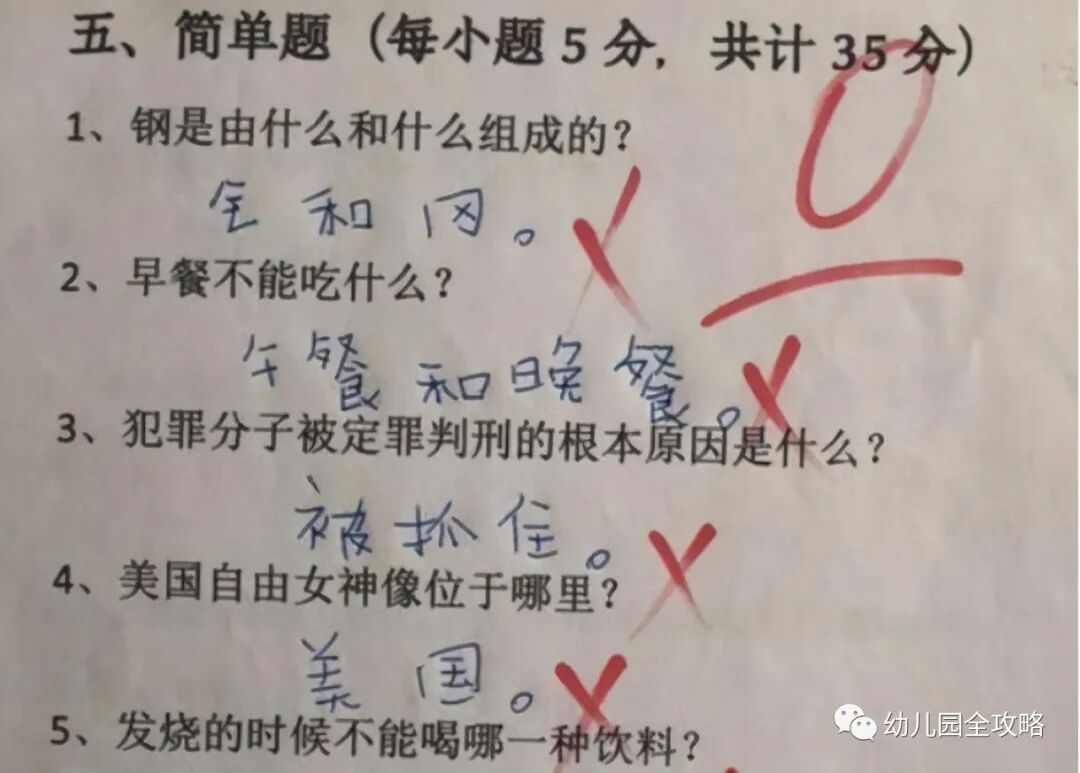 五、简单题（每小题5分，共计35分）
0
1、钢是由什么和什么组成的？
钅和冈。
2、早餐不能吃什么？
午餐和晚餐。
3、犯罪分子被定罪判刑的根本原因是什么？
被抓住。
4、美国自由女神像位于哪里？
美国。
5、发烧的时候不能喝哪一种饮料？
幼儿园全攻略